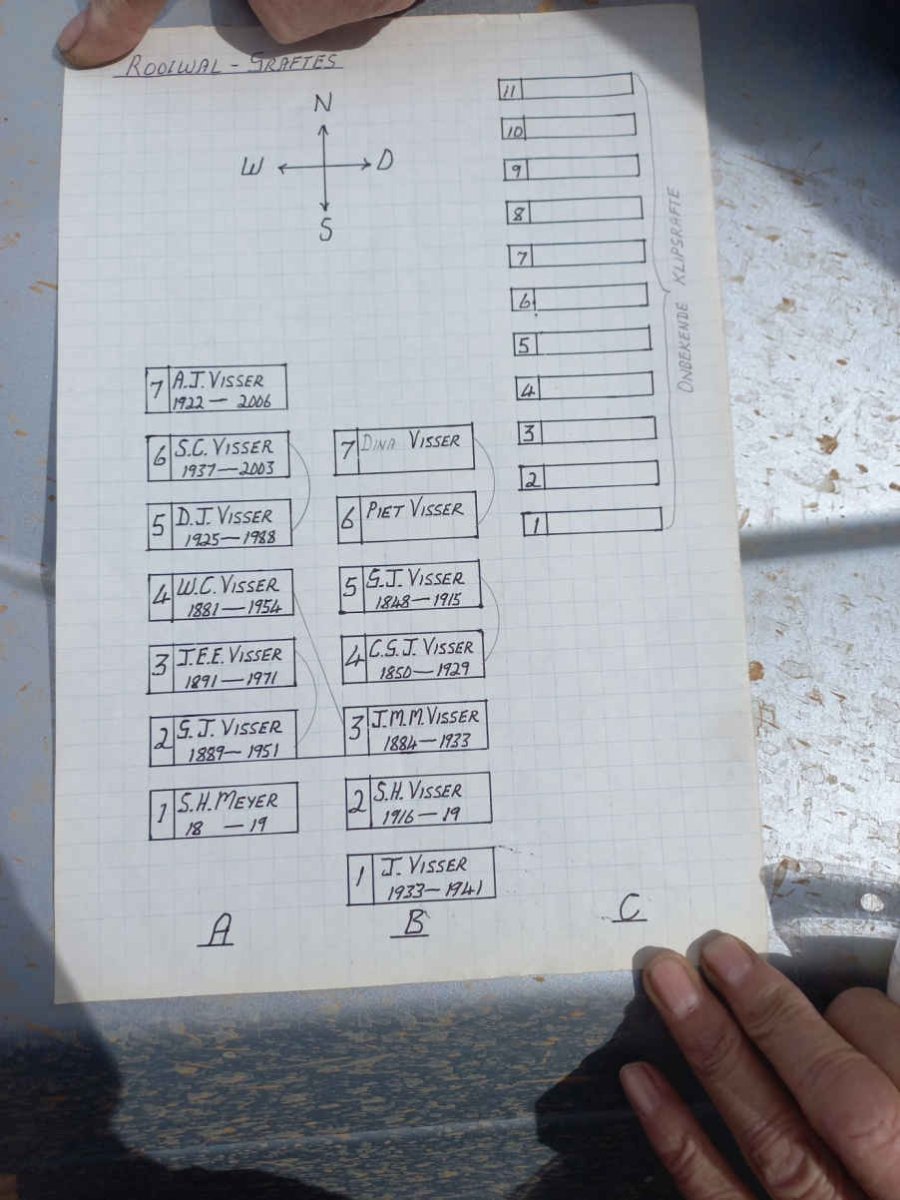 ROOIWAL - GRAFTES
N
W D
S
7 A.J. VISSER
1922 — 2006
6 S.C. VISSER
1937 — 2003
5 D.J. VISSER
1925 — 1988
4 W.C. VISSER
1881 — 1954
3 J.E.E. VISSER
1891 — 1971
2 G.J. VISSER
1889 — 1951
1 S.H. MEYER
18 — 19
A
7 DINA VISSER
6 PIET VISSER
5 G.J. VISSER
1848 — 1915
4 C.G.J. VISSER
1850 — 1929
3 J.M.M. VISSER
1884 — 1933
2 S.H. VISSER
1916 — 19
1 J. VISSER
1933 — 1941
B
11
10
9
8
7
6
5
4
3
2
1
C
ONBEKENDE KLIPGRAFTE